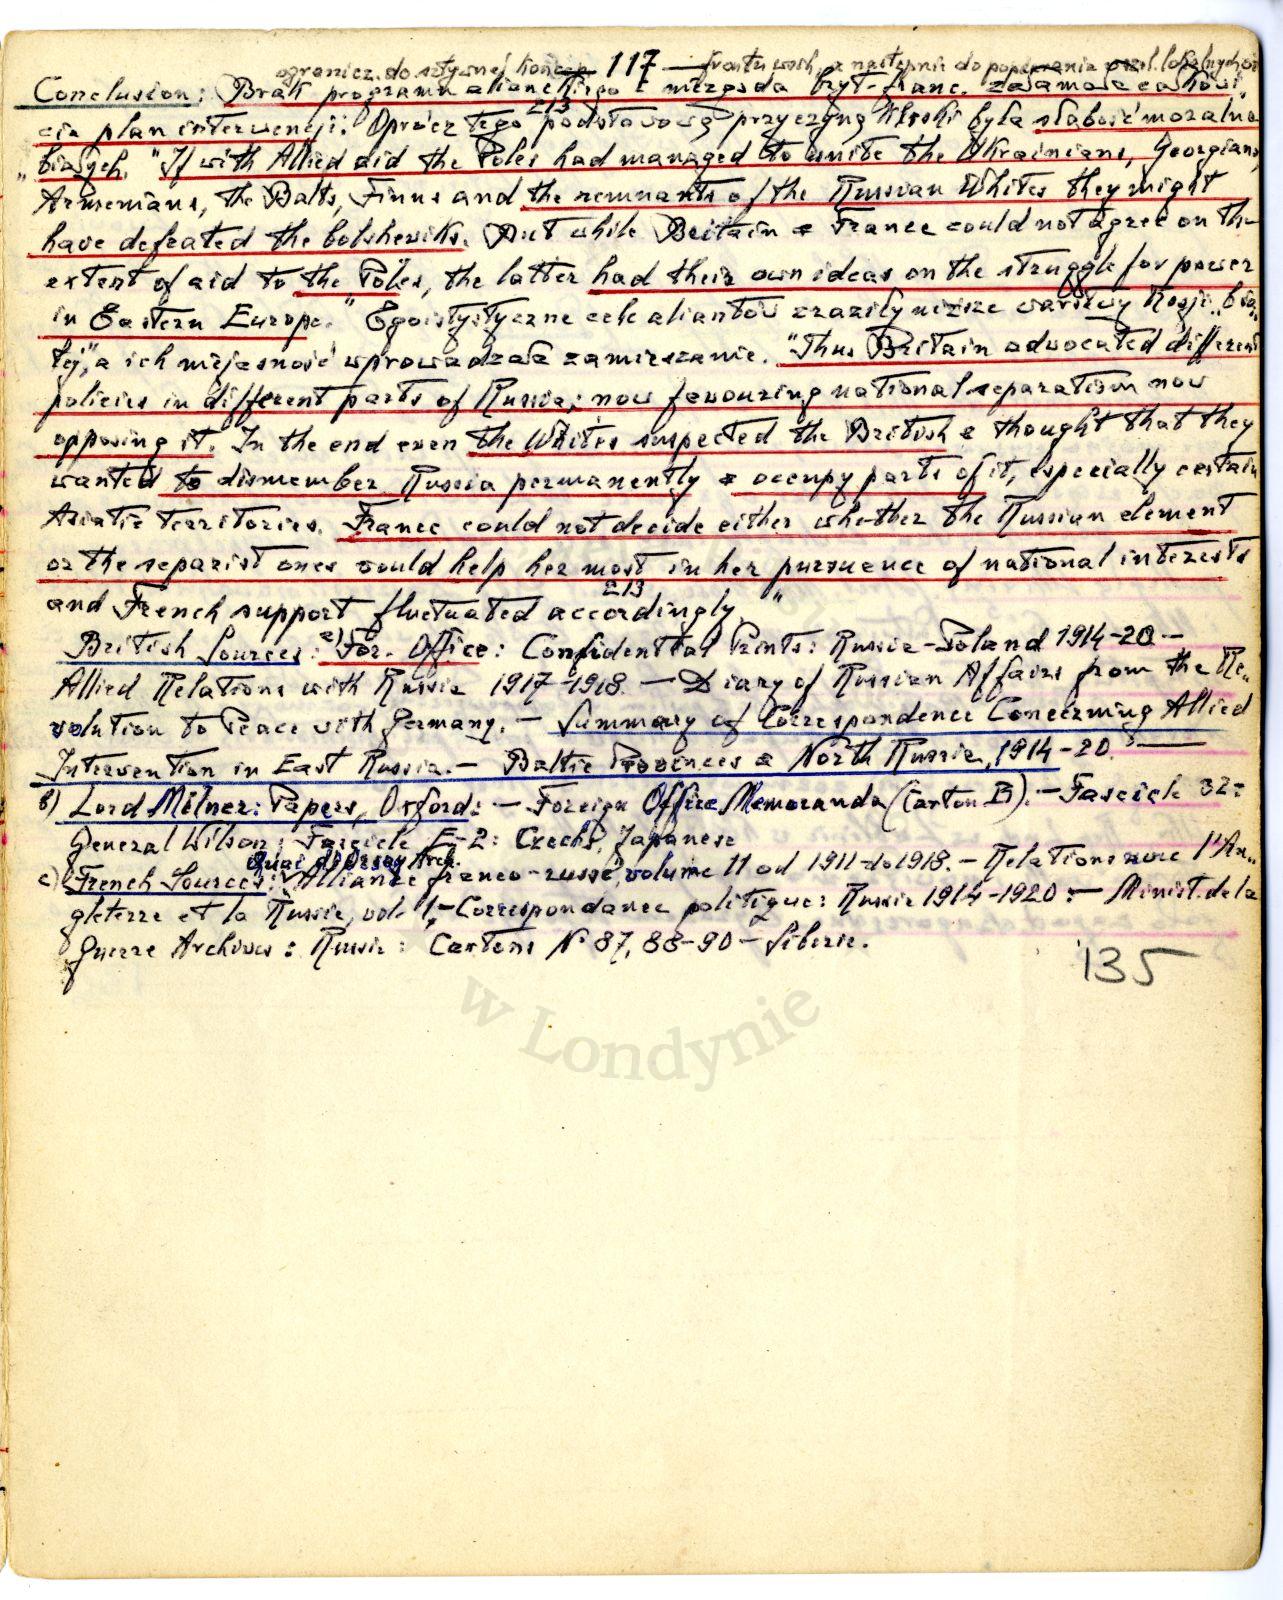 ogranicz. do sztywnej koncep. — 117 — frontu wsch., a następnie do popierania
Conclusion: Brak programu alianckiego i niezgoda bryt-franc. załamała całkowi„
cie plan interwencji. Oprócz tego 213 podstawową przyczyną klęski była słabość moralna
„białych. "If with Allied aid the Poles had managed to unite the Ukrainians, Georgians,
Armenians, the Balts, Finns and the remnants of the Russian Whites they might
have defeated the bolsheviks. But while Britain & France could not agree on the
extent of aid to the Poles, the latter had their own ideas on the struggle for power
in Eastern Europe." Egoistyczne cele aliantów zraziły niższe warstwy Rosji „bia„
łej", a ich niejasność wprowadzała zamieszanie. "Thus Britain advocated different
policies in different parts of Russia; now favouring national separatism now
opposing it. In the end even the Whites suspected the British & thought that they
wanted to dismember Russia permanently & occupy parts of it, especially certain
Asiatic territories. France could not decide either whether the Russian element
or the separist ones would help her most in her pursuence of national interests
and French support fluctuated accordingly." 213
British Sources: a) For. Office: Confidential Prints: Russia-Poland 1914-20 —
Allied Relations with Russia 1917-1918. — Diary of Russian Affairs from the Re„
volution to Peace with Germany. — Summary of Correspondence Concerning Allied
Intervention in East Russia. — Baltic Provinces & North Russia, 1914-20. —
b) Lord Milner: Papers, Oxford: — Foreign Office Memoranda (Carton B). — Fascicle 32:
General Wilson; Fascicle E-2: Czechs, Japanese
Quai d'Orsay Arch.
c) French Sources: Alliance franco-russe, volume 11 od 1911-do 1918. — Relations avec l'An„
gleterre et la Russie, vol. 1, — Correspondance politique: Russie 1914-1920: — Minist. de la
Guerre Archives: Russie: Cartons No 87, 88-90 — Siberie.
135
w Londynie